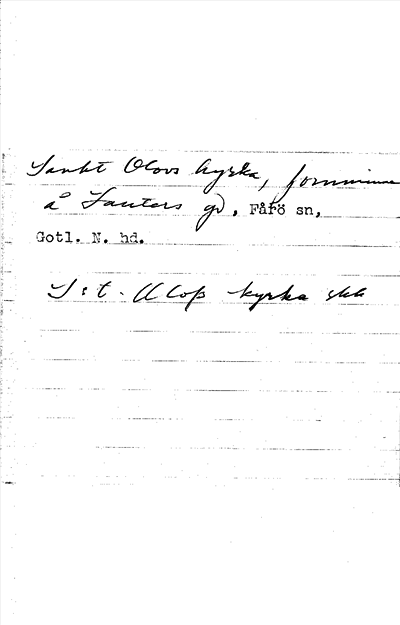 Sankt Olovs kyrka, fornminne
å Lauters gd, Fårö sn,
Gotl. N. hd.
S:t. Olofs kyrka